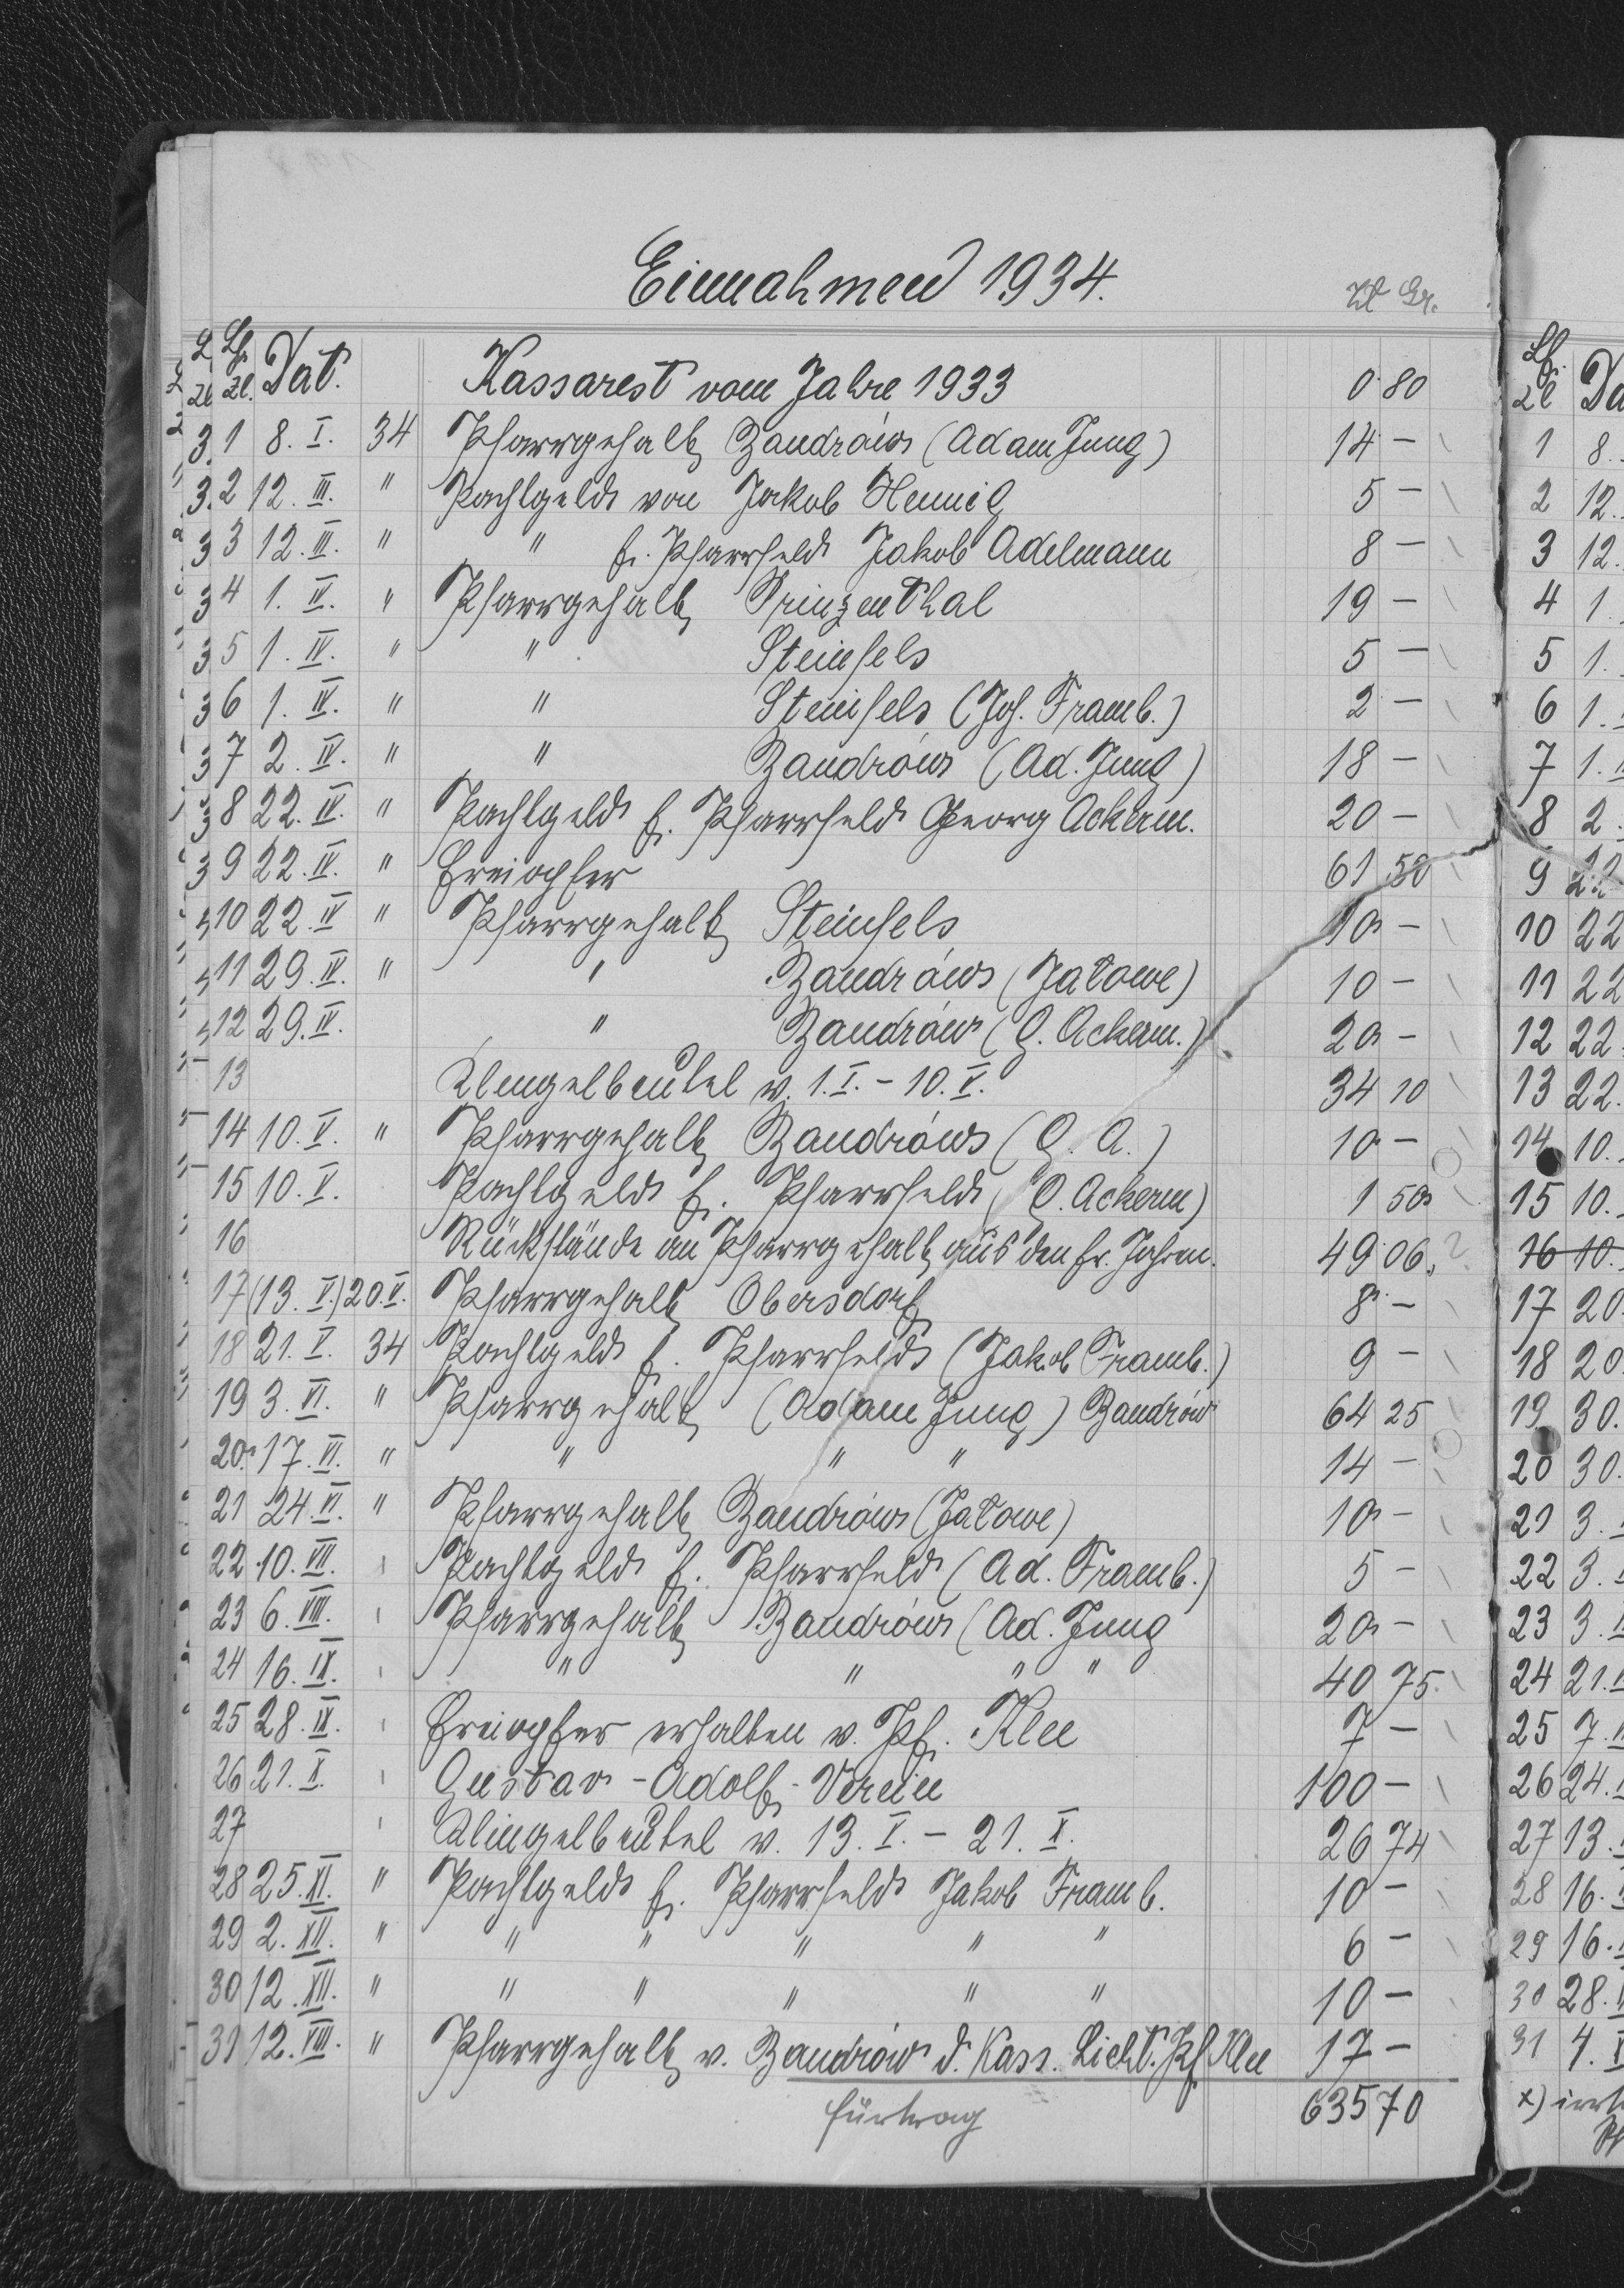 Einnahmen 1934.
Zł Gr.
Lf. Zl. Dat.
Kassarest vom Jahre 1933 0 80
1 8. I. 34 Pfarrgehalt Bandrów (Adam Jung) 14 -
2 12. III. " Pachtgeld von Jakob Hennig 5 -
3 12. III. " " f. Pfarrfeld Jakob Adelmann 8 -
4 1. IV. " Pfarrgehalt Prinzenthal 19 -
5 1. IV. " " Steinfels 5 -
6 1. IV. " " Steinfels (Joh. Framb.) 2 -
7 2. IV. " " Bandrów (Ad. Jung) 18 -
8 22. IV. " Pachtgeld f. Pfarrfeld Georg Ackerm. 20 -
9 22. IV. " Freiopfer 61 50
10 22. IV " Pfarrgehalt Steinfels 10 -
11 29. IV. " " Bandrów (Jatowe) 10 -
12 29. IV. " Bandrów (G. Ackerm.) 20 -
13 Klingelbeutel v. 1. I. - 10. V. 34 10
14 10. V. " Pfarrgehalt Bandrów (G. A.) 10 -
15 10. V. Pachtgeld f. Pfarrfeld (G. Ackerm) 1 50
16 Rückstände an Pfarrgehalt aus den fr. Jahren. 49 06. ?
17 (13. V.) 20. V. Pfarrgehalt Obersdorf 8 -
18 21. V. 34 Pachtgeld f. Pfarrfeld (Jakob Framb.) 9 -
19 3. VI. " Pfarrgehalt (Adam Jung) Bandrów 64 25
20. 17. VI. " " " " 14 -
21 24. VI. " Pfarrgehalt Bandrów (Jatowe) 10 -
22 10. VII. " Pachtgeld f. Pfarrfeld (Ad. Framb.) 5 -
23 6. VIII. " Pfarrgehalt Bandrów (Ad. Jung 20 -
24 16. IX. " " " " " 40 75.
25 28. IX. " Freiopfer erhalten v. Pf. Klee 7 -
26 21. X. " Gustav-Adolf-Verein 100 -
27 " Klingelbeutel v. 13. V. - 21. X. 26 74
28 25. XI. " Pachtgeld f. Pfarrfeld Jakob Framb. 10 -
29 2. XII. " " " " " " 6 -
30 12. XII. " " " " " " 10 -
31 12. VIII. " Pfarrgehalt v. Bandrów d. Kass. Licht. Pf. Klee 17 -
Fürtrag 635 70
Lf. Zl Da
1 8.
2 12.
3 12.
4 1.
5 1.
6 1.
7 1.
8 2.
9 22
10 22
11 22
12 22
13 22.
14 10.
15 10.
16 10.
17 20
18 20
19 30.
20 30.
21 3.
22 3.
23 3.
24 21.
25 7.
26 24.
27 13.
28 16.
29 16.
30 28.
31 4.
x)